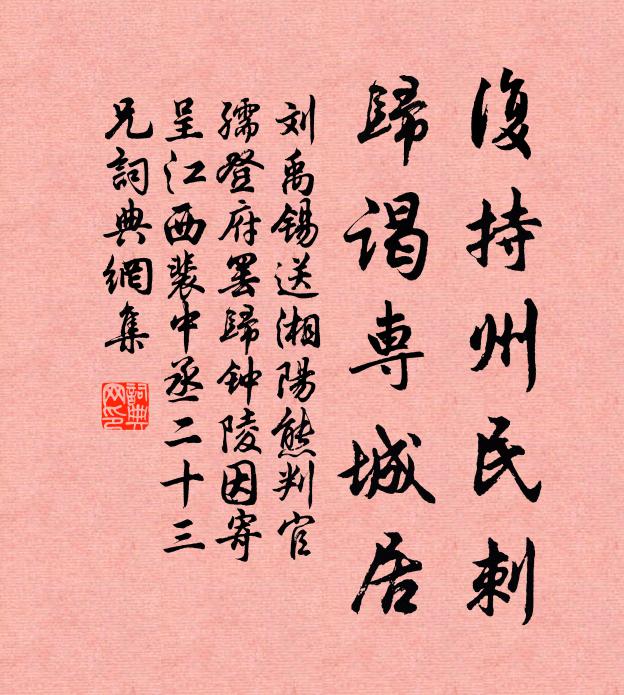 復持州民刺
歸謁専城居
刘禹锡送湘陽熊判官
孺登府罢歸钟陵因寄
呈江西裴中丞二十三
兄詞典網集
詞典
网印